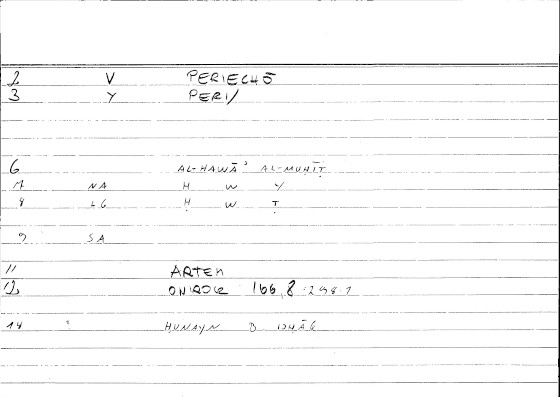 2 V PERIECHŌ
3 Y PERI/
6 AL-HAWĀʾ AL-MUḤĪṬ
7 NA H W Y
8 LG Ḥ W Ṭ
9 SA
11 ARTEM
12 ONIROCR 166,8 : 298.1
14 ḤUNAYN B ISḤĀQ